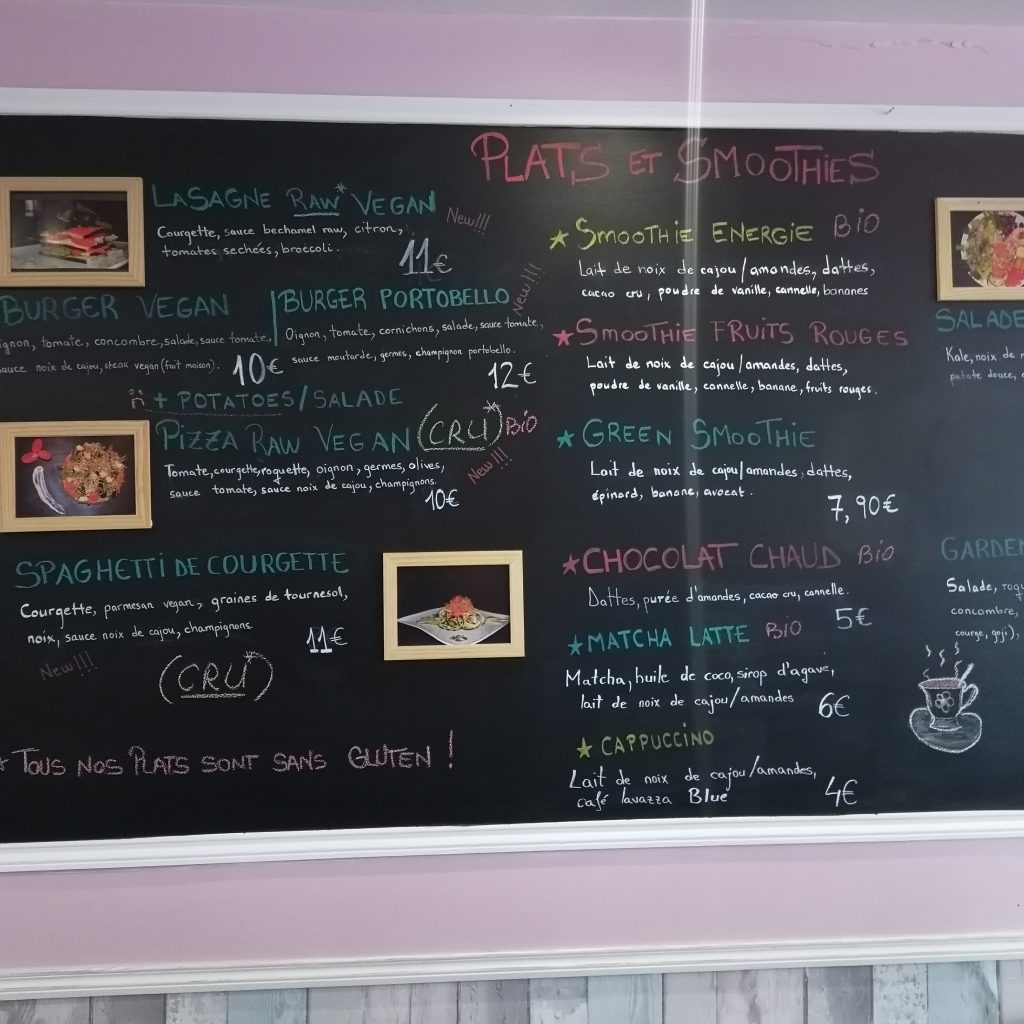 PLATS ET SMOOTHIES
LASAGNE RAW* VEGAN
New!!!
Courgette, sauce bechamel raw, citron,
tomates sechées, broccoli.
11€
BURGER VEGAN
oignon, tomate, concombre, salade, sauce tomate,
sauce noix de cajou, steak vegan (fait maison).
10€
BURGER PORTOBELLO
New!!!
Oignon, tomate, cornichons, salade, sauce tomate,
sauce moutarde, germes, champignon portobello.
12€
+ POTATOES/SALADE
PIZZA RAW VEGAN (CRU)* BIO
Tomate, courgette, roquette, oignon, germes, olives,
sauce tomate, sauce noix de cajou, champignons.
New!!!
10€
SPAGHETTI DE COURGETTE
Courgette, parmesan vegan, graines de tournesol,
noix, sauce noix de cajou, champignons.
11€
New!!!
(CRU*)
* TOUS NOS PLATS SONT SANS GLUTEN !
★ SMOOTHIE ENERGIE BIO
Lait de noix de cajou/amandes, dattes,
cacao cru, poudre de vanille, cannelle, bananes
★ SMOOTHIE FRUITS ROUGES
Lait de noix de cajou/amandes, dattes,
poudre de vanille, cannelle, banane, fruits rouges.
★ GREEN SMOOTHIE
Lait de noix de cajou/amandes, dattes,
épinard, banane, avocat.
7,90€
★ CHOCOLAT CHAUD BIO
Dattes, purée d'amandes, cacao cru, cannelle.
5€
★ MATCHA LATTE BIO
Matcha, huile de coco, sirop d'agave,
lait de noix de cajou/amandes
6€
★ CAPPUCCINO
Lait de noix de cajou/amandes,
café lavazza Blue
4€
SALADE
Kale, noix de
patate douce,
GARDEN
Salade,
concombre,
courge, goji),